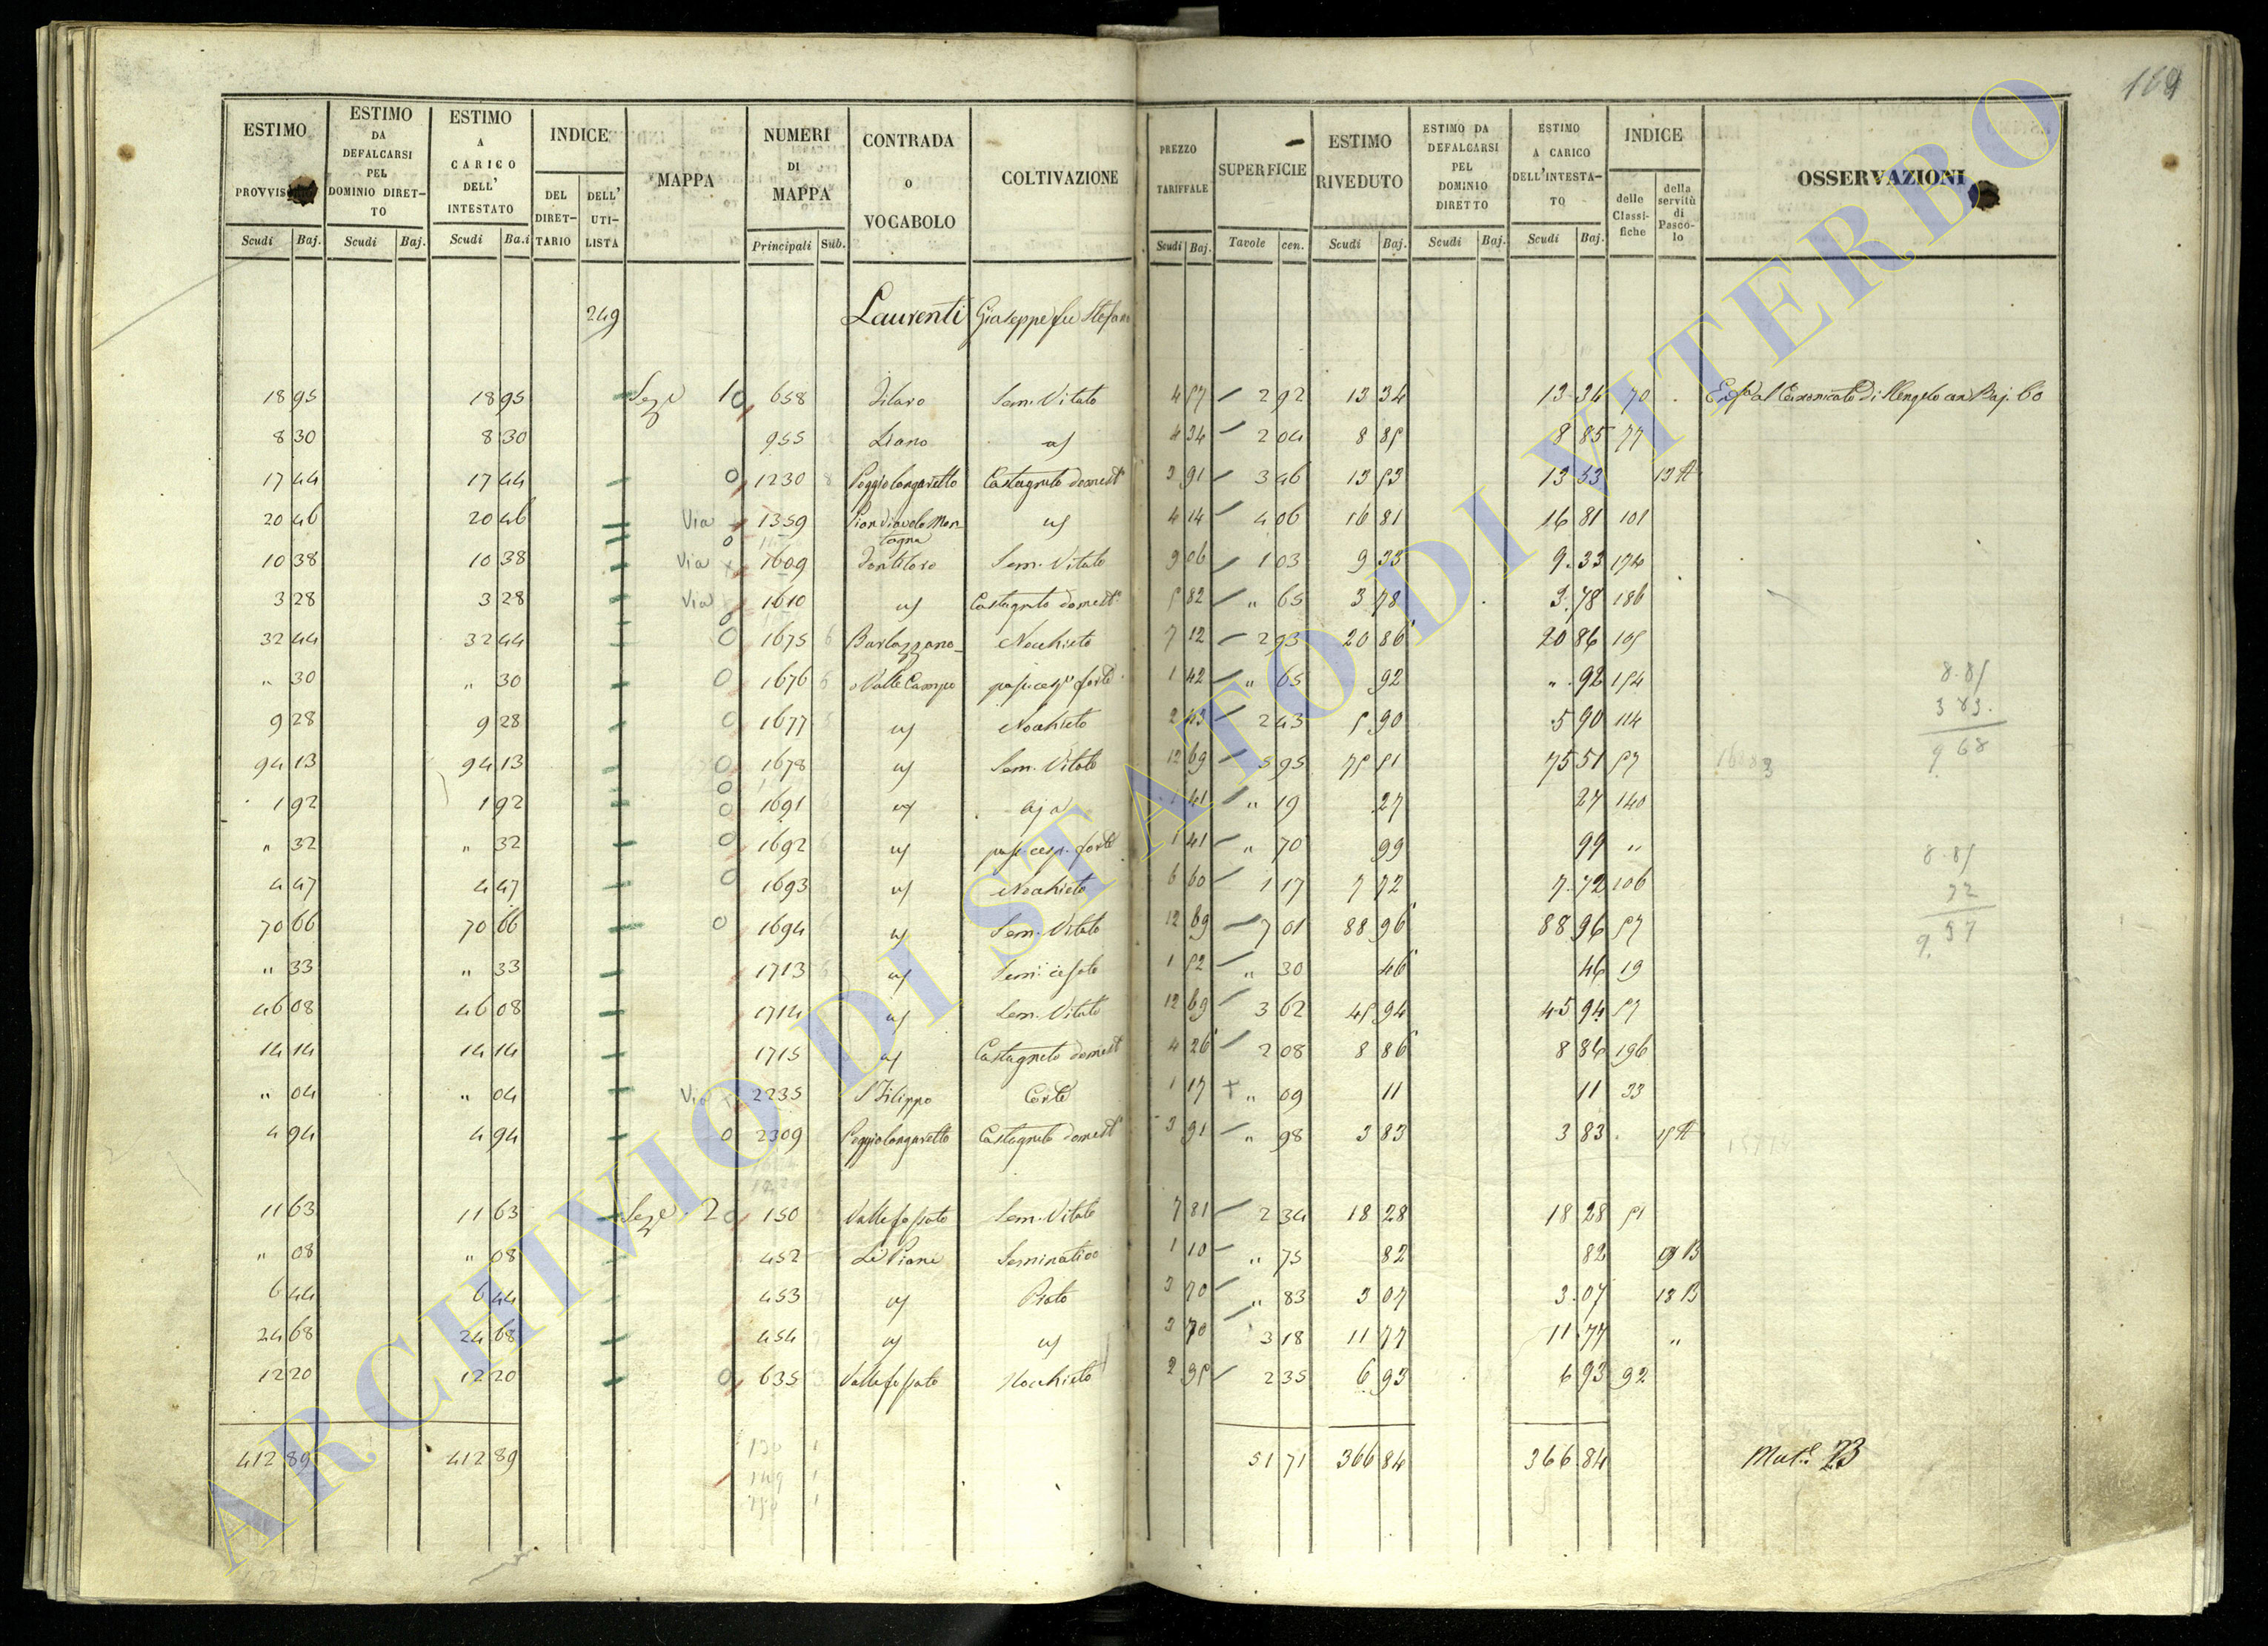 169
ESTIMO PROVVIS
ESTIMO DA DEFALCARSI PEL DOMINIO DIRET-TO
ESTIMO A CARICO DELL' INTESTATO
INDICE
DEL DIRET-TARIO
DELL' UTI-LISTA
MAPPA
NUMERI DI MAPPA
CONTRADA o VOCABOLO
COLTIVAZIONE
PREZZO TARIFFALE
SUPERFICIE
ESTIMO RIVEDUTO
ESTIMO DA DEFALCARSI PEL DOMINIO DIRETTO
ESTIMO A CARICO DELL'INTESTA-TO
INDICE
delle Classi-fiche
della servitù di Pasco-lo
OSSERVAZIONI
Scudi Baj. Scudi Baj. Scudi Ba.i Principali Sub. Scudi Baj. Tavole cen. Scudi Baj. Scudi Baj. Scudi Baj.
249 Laurenti Giuseppe fu Stefano
18 95 18 95 Sezе 1 0 658 Filaro Sem. Vitato 4 57 2 92 13 34 13 34 70 Baj. 60
8 30 8 30 955 Liano uf 4 34 2 04 8 85 8 85 77
17 44 17 44 0 1230 8 Poggiolongaretto Castagneto domest 3 91 3 46 13 53 13 53 13 A
20 46 20 46 Via 1359 Pian Diavolo Mon-tagna uf 4 14 4 06 16 81 16 81 101
10 38 10 38 Via 0 1609 Fontiloro Sem. Vitato 9 06 1 03 9 33 9.33 174
3 28 3 28 Via 1610 uf Castagneto domest 5 82 " 65 3 78 3.78 186
32 44 32 44 0 1675 6 Barlozzano Nochieto 7 12 2 93 20 86 20 86 105
" 30 " 30 0 1676 6 o Valle Campo pas. cesp. forte 1 42 " 65 92 " 92 154
9 28 9 28 0 1677 uf Nochieto 2 43 2 43 5 90 5 90 114
94 13 94 13 0 1678 uf Sem. Vitato 12 69 5 95 75 51 75 51 57
1 92 1 92 0 1691 uf Aja 1 41 " 19 27 27 140
" 32 " 32 0 1692 uf pas. cesp. forte 1 41 " 70 99 99 "
4 47 4 47 0 1693 uf Nochieto 6 60 1 17 7 72 7.72 106
70 66 70 66 0 1694 uf Sem. Vitato 12 69 7 01 88 96 88 96 57
" 33 " 33 1713 uf Sem. cesato 1 52 " 30 46 46 19
46 08 46 08 1714 uf Sem. Vitato 12 69 3 62 45 94 45 94 57
14 14 14 14 1715 uf Castagneto domest 4 26 2 08 8 86 8 86 196
" 04 " 04 Via 2235 S Filippo Corte 1 17 + " 09 11 11 33
4 94 4 94 0 2309 Poggiolongaretto Castagneto domest 3 91 " 98 3 83 3 83 15 A
11 63 11 63 Seze 2 0 150 Vallefossato Sem. Vitato 7 81 2 34 18 28 18 28 51
" 08 " 08 452 Le Piane Seminativo 1 10 " 75 82 82 B
6 44 6 44 453 uf Prato 3 70 " 83 3 07 3.07 18 B
24 68 24 68 454 uf uf 3 70 3 18 11 77 11.77 "
12 20 12 20 0 635 Vallefossato Nochieto 2 95 2 35 6 93 6 93 92
412 89 412 89 51 71 366 84 366 84 Mat.e 73
8.85
3 83.
9 68
8.85
32
9.37
130 1
149 1
150 1
ARCHIVIO DI STATO DI VITERBO